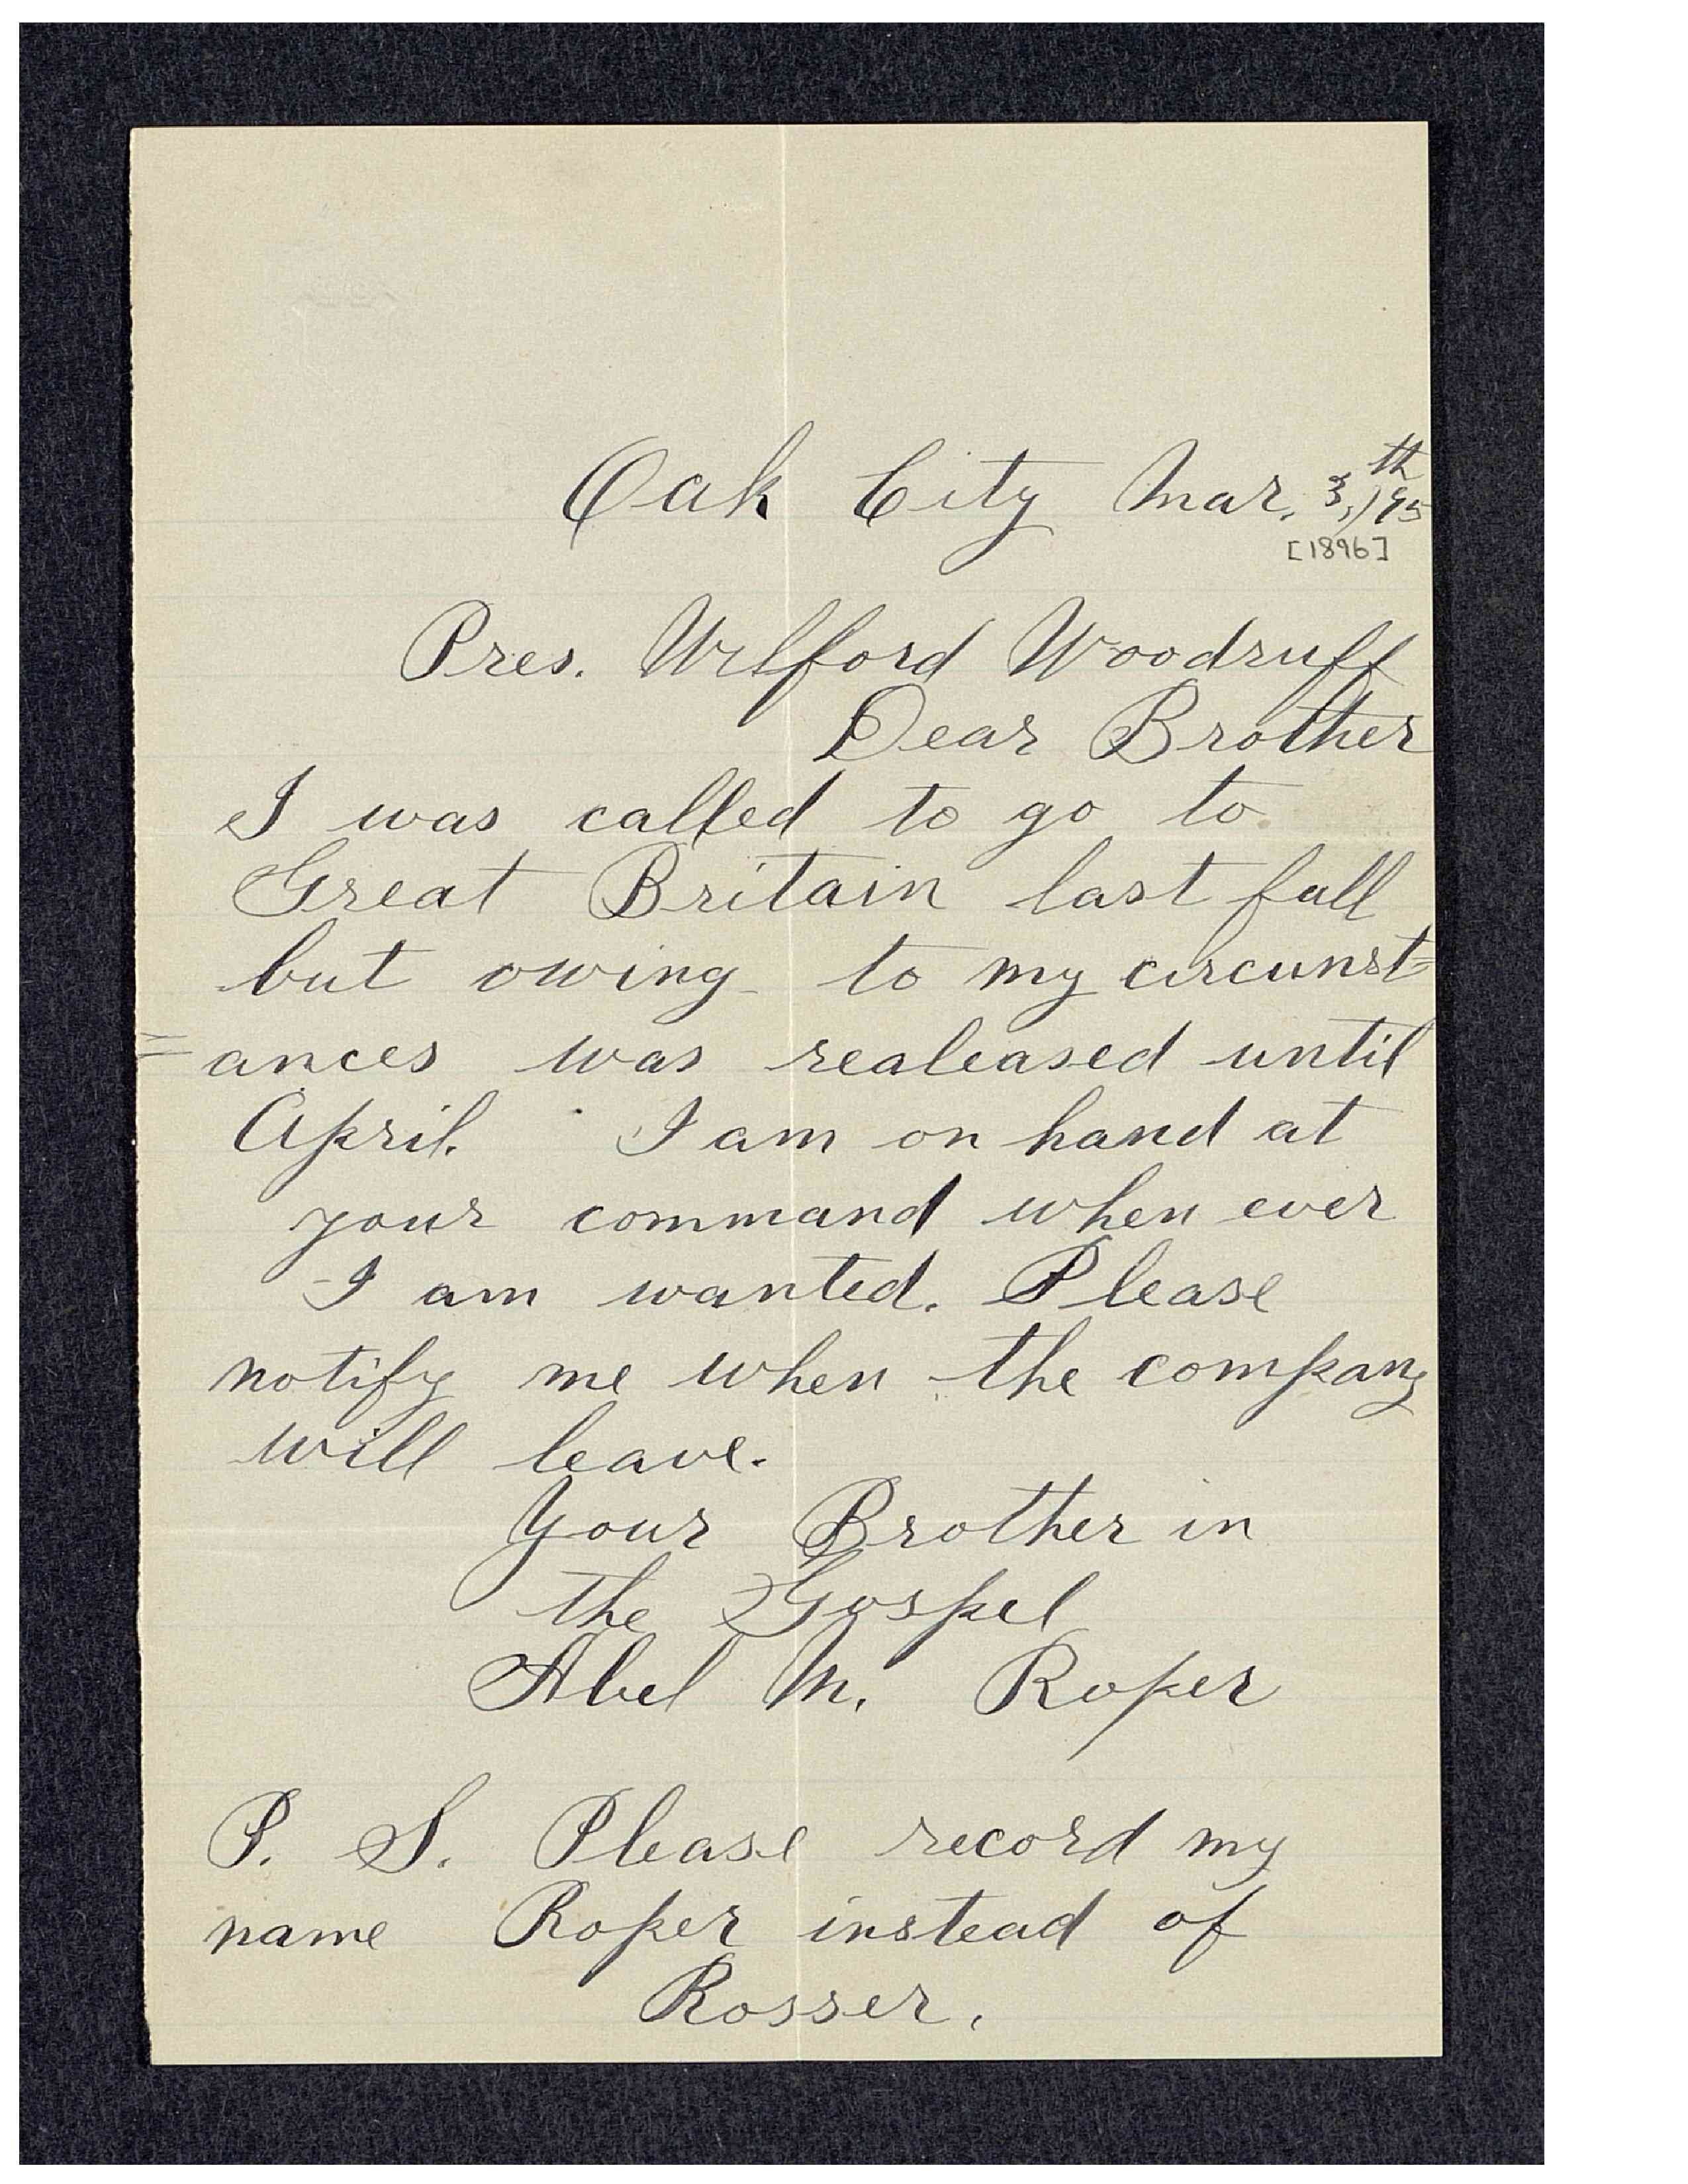 Oak City Mar. 3,th /95
[1896]
Pres. Wilford Woodruff
Dear Brother
I was called to go to
Great Britain last fall
but owing to my circunst=
=ances was realeased until
April. I am on hand at
your command when ever
I am wanted. Please
notify me when the company
will leave.
Your Brother in
the Gospel
Abel M. Roper
P. S. Please record my
name Roper instead of
Rosser.